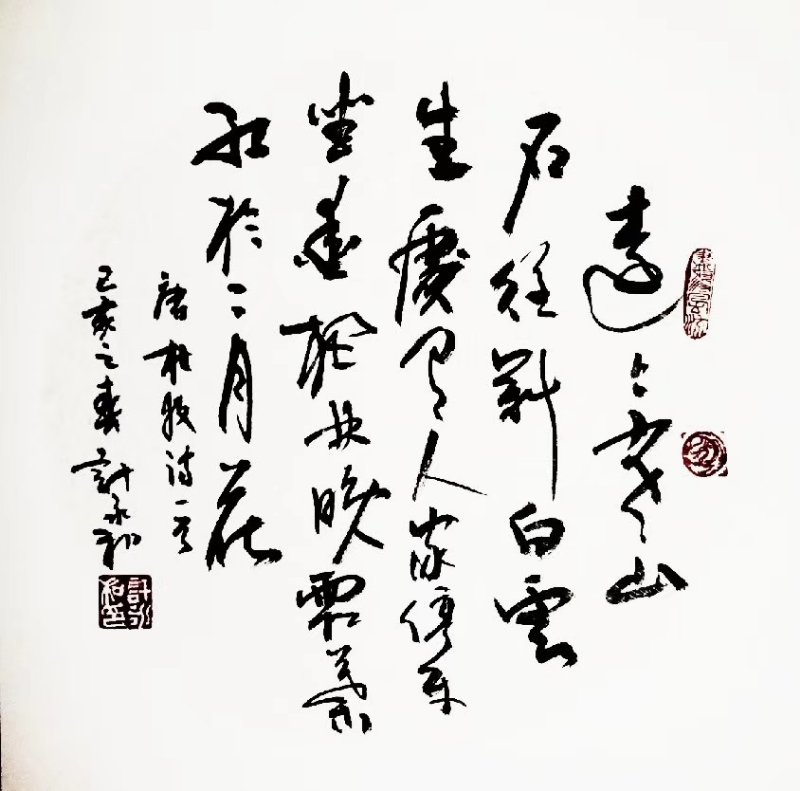 遠上寒山
石徑斜白雲
生處有人家停車
坐愛楓林晚霜葉
紅於二月花
唐杜牧詩一首
己亥之春計永和
計永和印